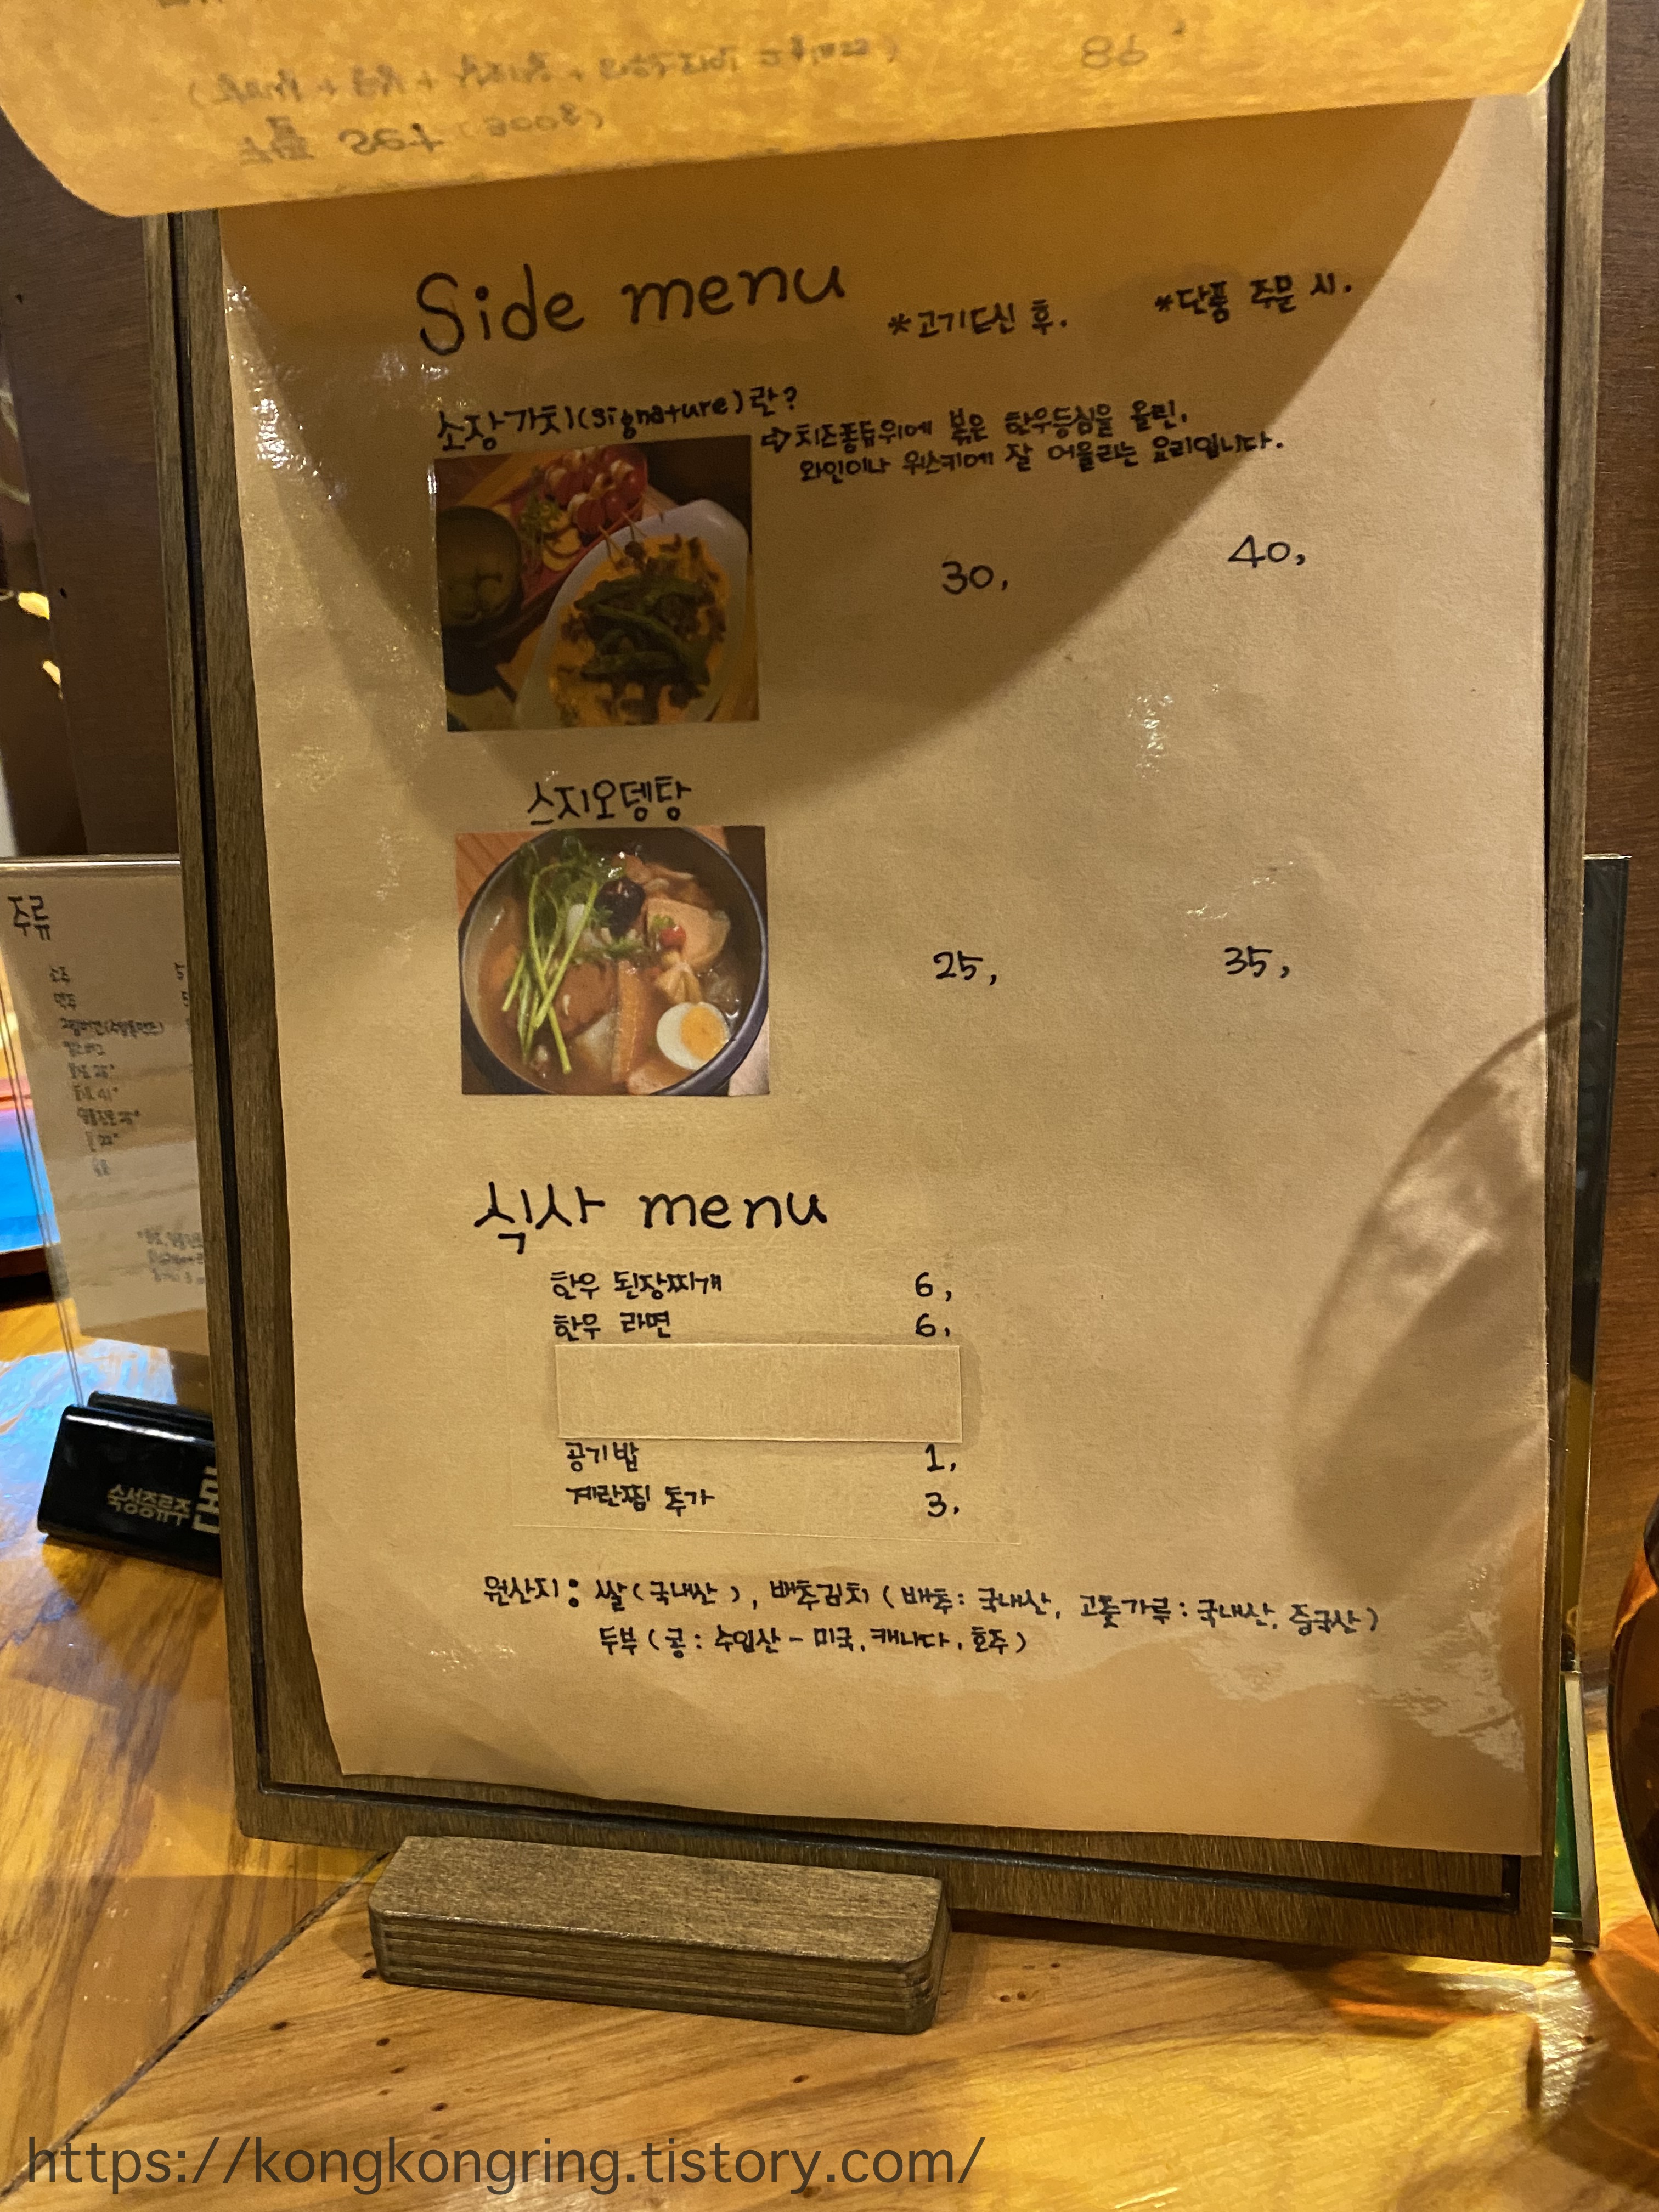 Side menu
*고기드신 후.
*단품 주문 시.
소장가치(signature)란?
⇨치즈퐁듀위에 볶은 한우등심을 올린,
와인이나 위스키에 잘 어울리는 요리입니다.
30,
40,
스지오뎅탕
25,
35,
식사 menu
한우 된장찌개 6,
한우 라면 6,
공기밥 1,
계란찜 추가 3,
원산지: 쌀(국내산), 배추김치(배추: 국내산, 고춧가루: 국내산, 중국산)
두부(콩: 수입산-미국, 캐나다, 호주)
주류
소주
맥주
숙성증류주
https://kongkongring.tistory.com/